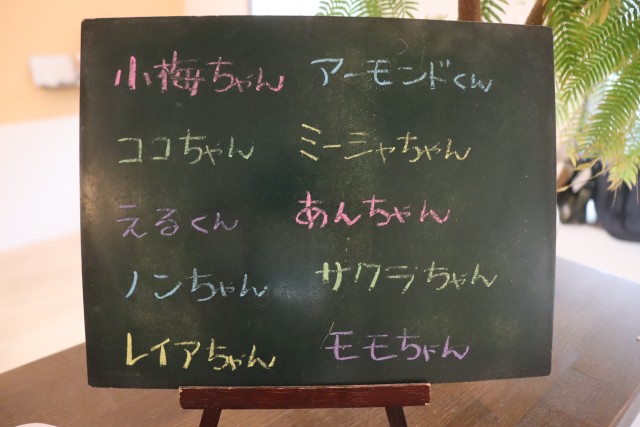 小梅ちゃん アーモンドくん
ココちゃん ミーシャちゃん
えるくん あんちゃん
ノンちゃん サクラちゃん
レイアちゃん モモちゃん